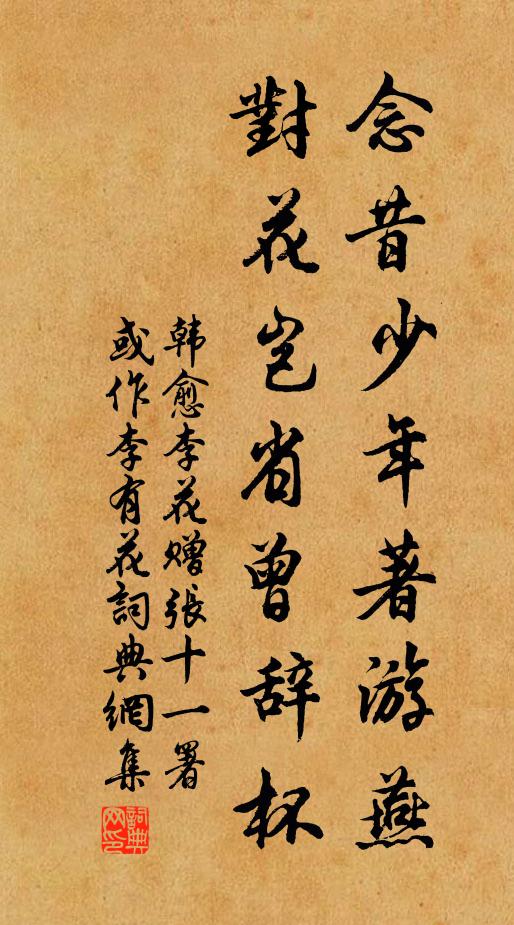 念昔少年著游燕
對花岂省曾辞杯
韩愈李花赠張十一署
或作李有花詞典網集
詞典网印